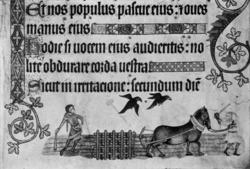 Et nos populus pascue eius: & oues
manus eius
Hodie si uocem eius audieritis: no
lite obdurare corda uestra
Sicut in irritacione: secundum diē